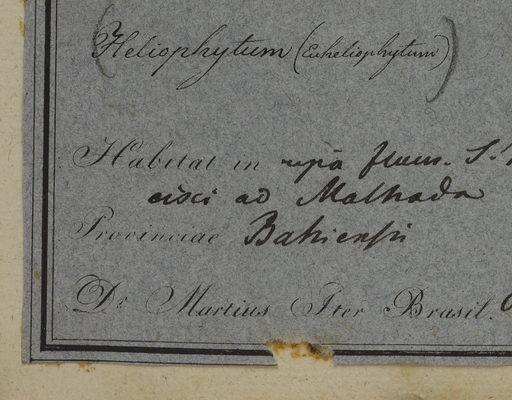 (Heliophytum (Euheliophytum))
Habitat in ripâ flum. S.
cisci ad Malhada
Provinciae Bahiensis
Dr. Martius Iter Brasil.